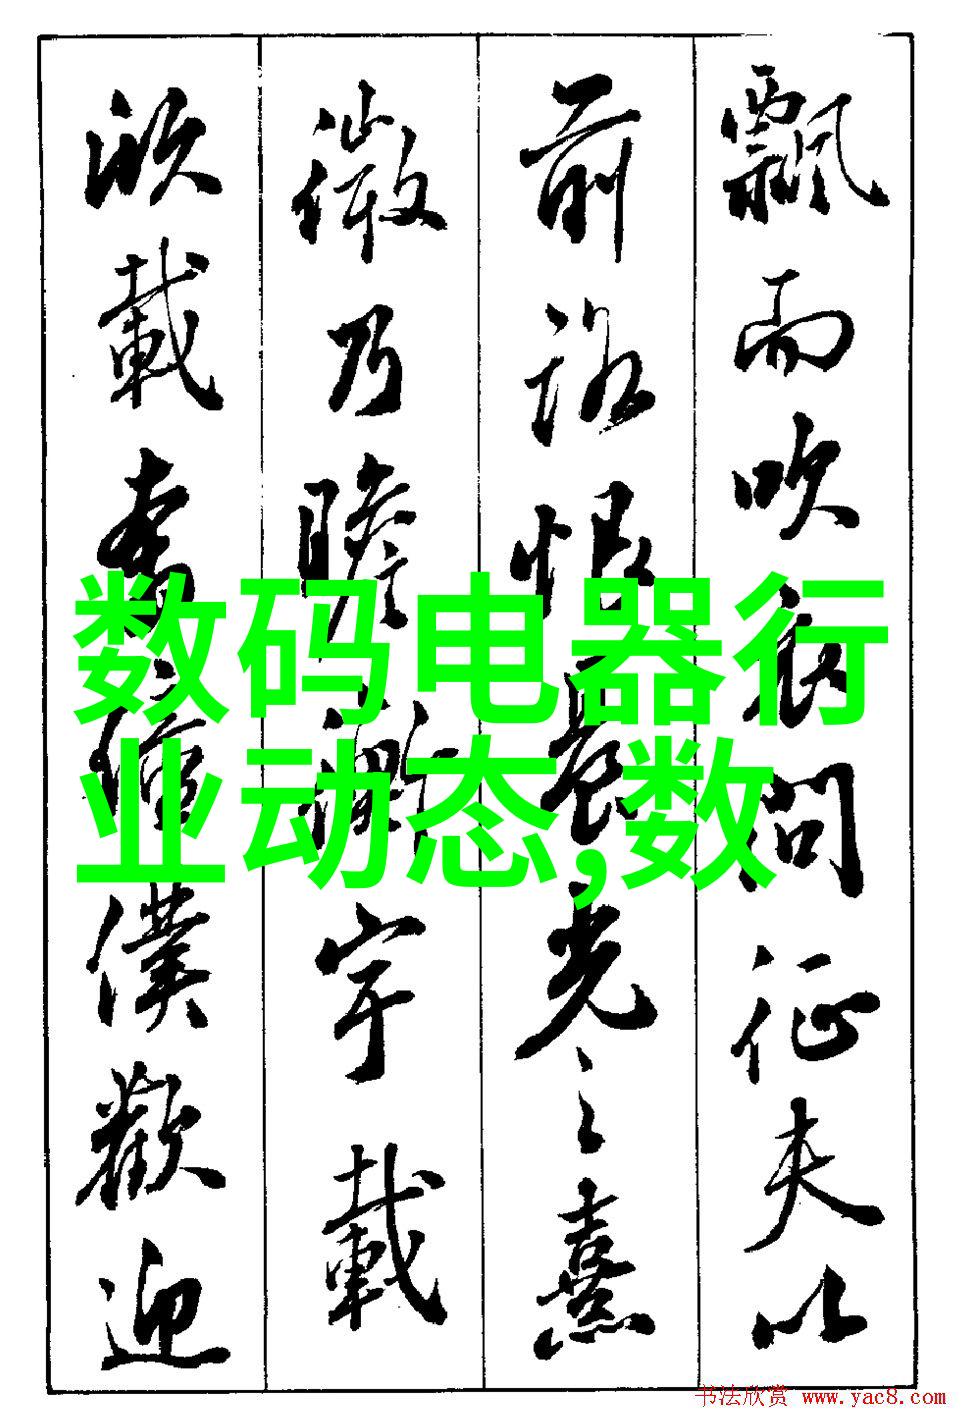 飄而吹衣問征夫以
前路恨晨光之熹
微乃瞻衡宇載
欣載奔僮僕歡迎
数码电器行
业动态,数
书法欣赏 www.yac8.com